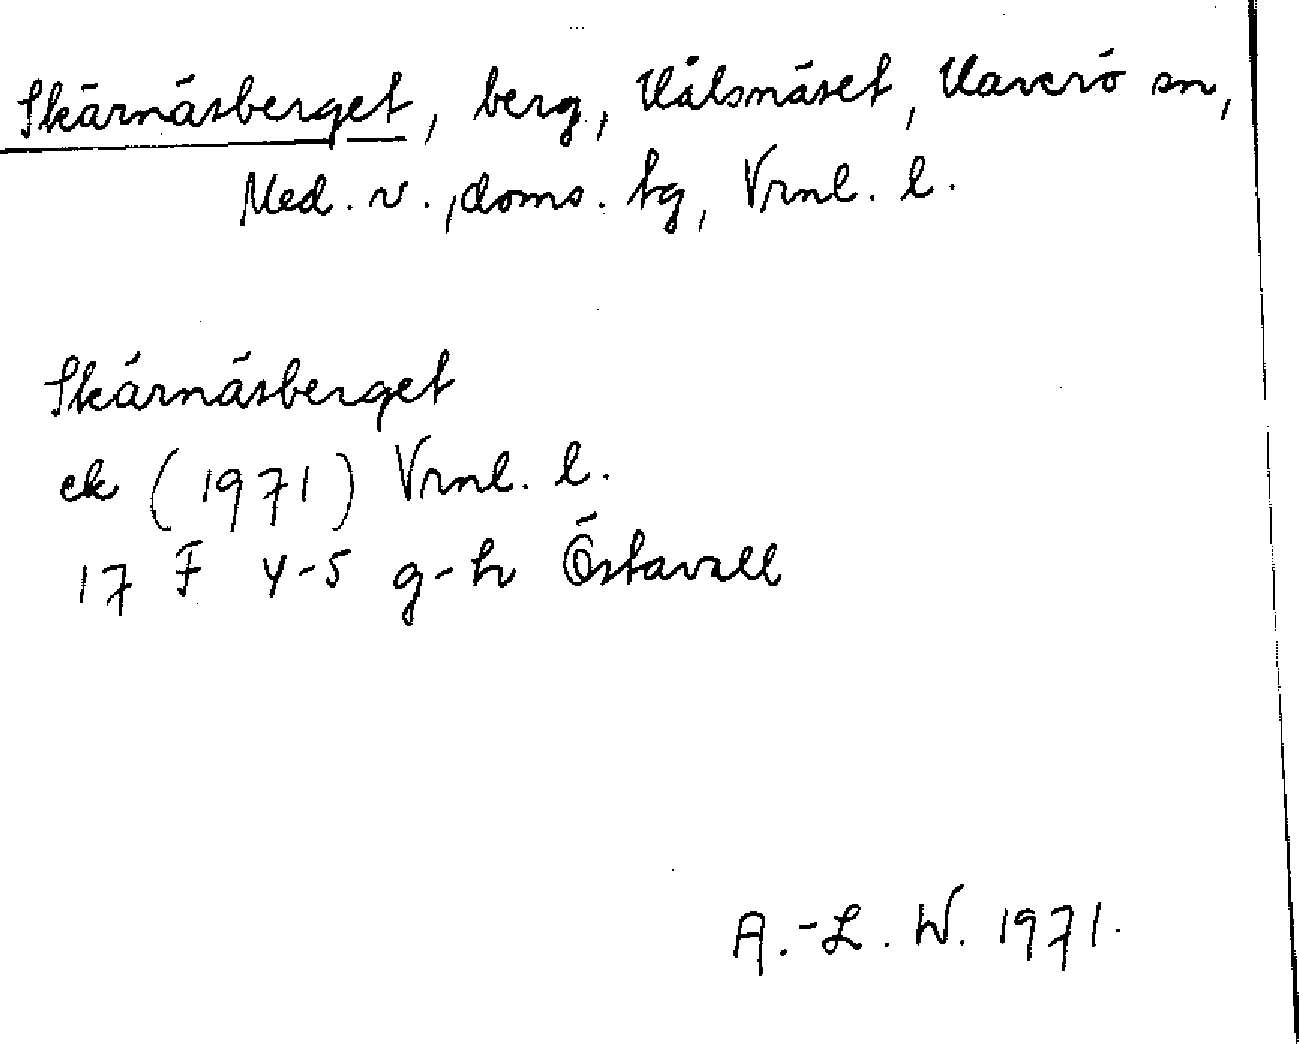 Skärnäsberget, berg, Vålsnäset, Haverö sn,
Med. v., doms. tg, Vrnl. l.
Skärnäsberget
ek (1971) Vrnl. l.
17 F 4-5 g-h Östavall
A.-L. W. 1971.